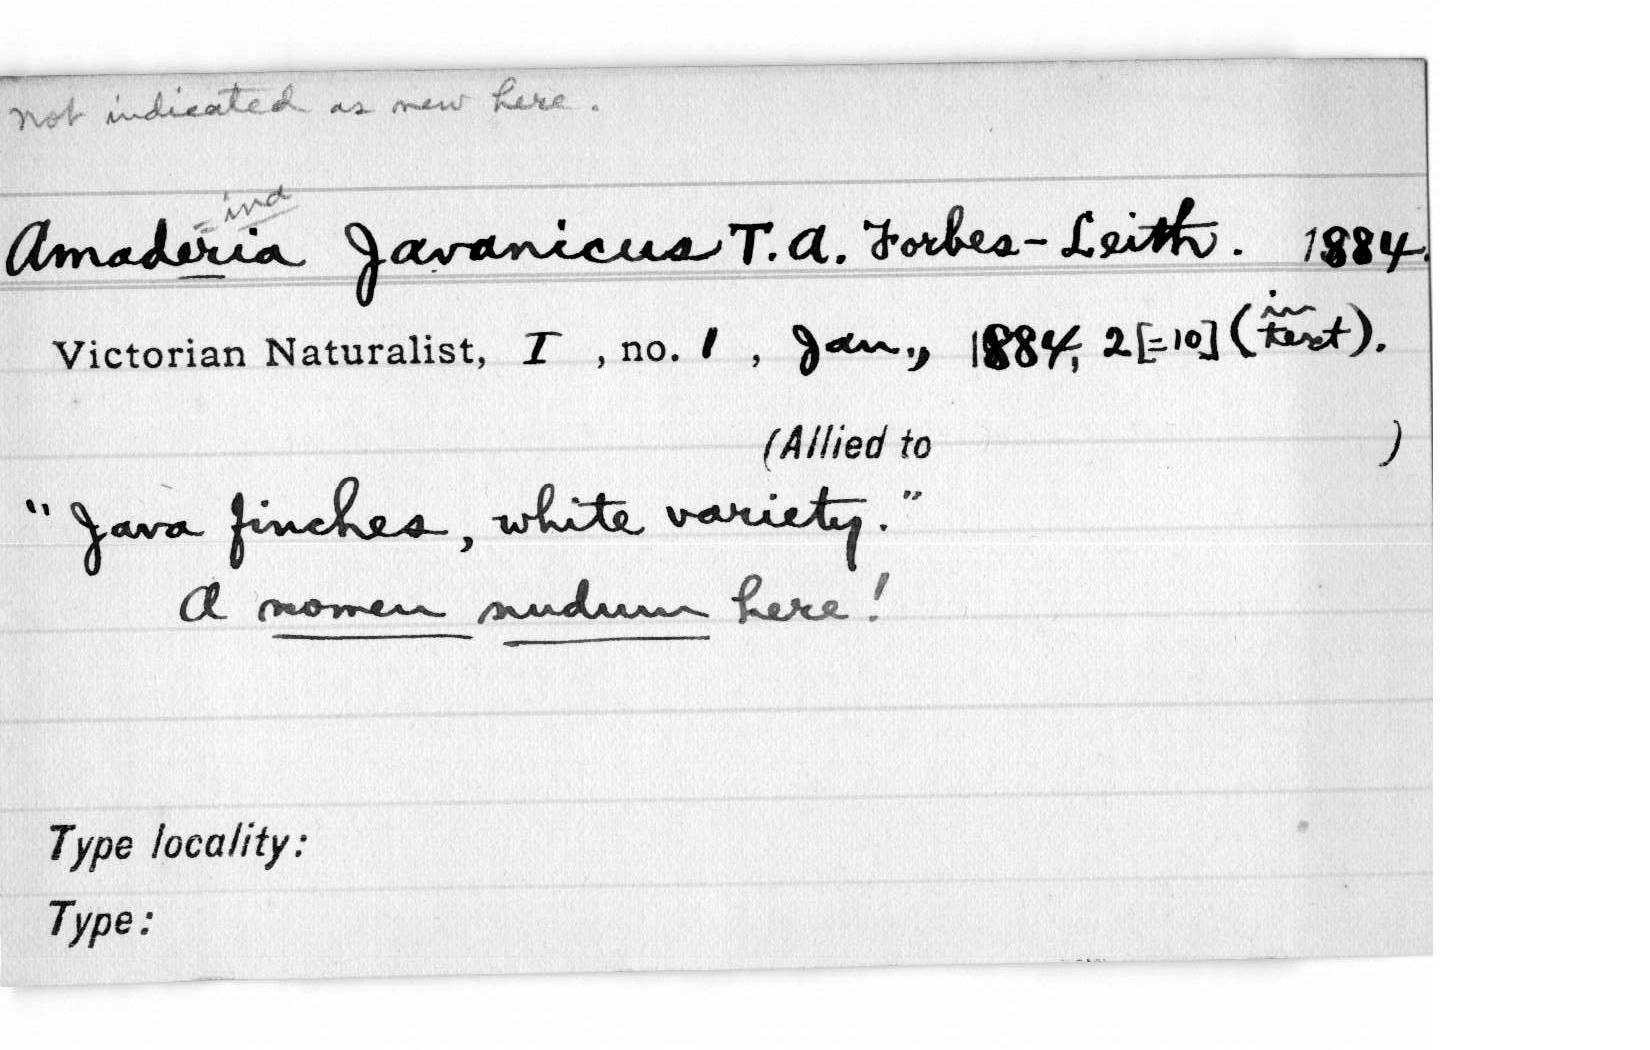 not indicated as new here.
= ind
Amaderia Javanicus T. A. Forbes-Leith. 1884.
Victorian Naturalist, I , no. 1 , Jan., 1884, 2 [=10] (in text).
(Allied to )
"Java finches, white variety."
A nomen nudum here!
Type locality:
Type: